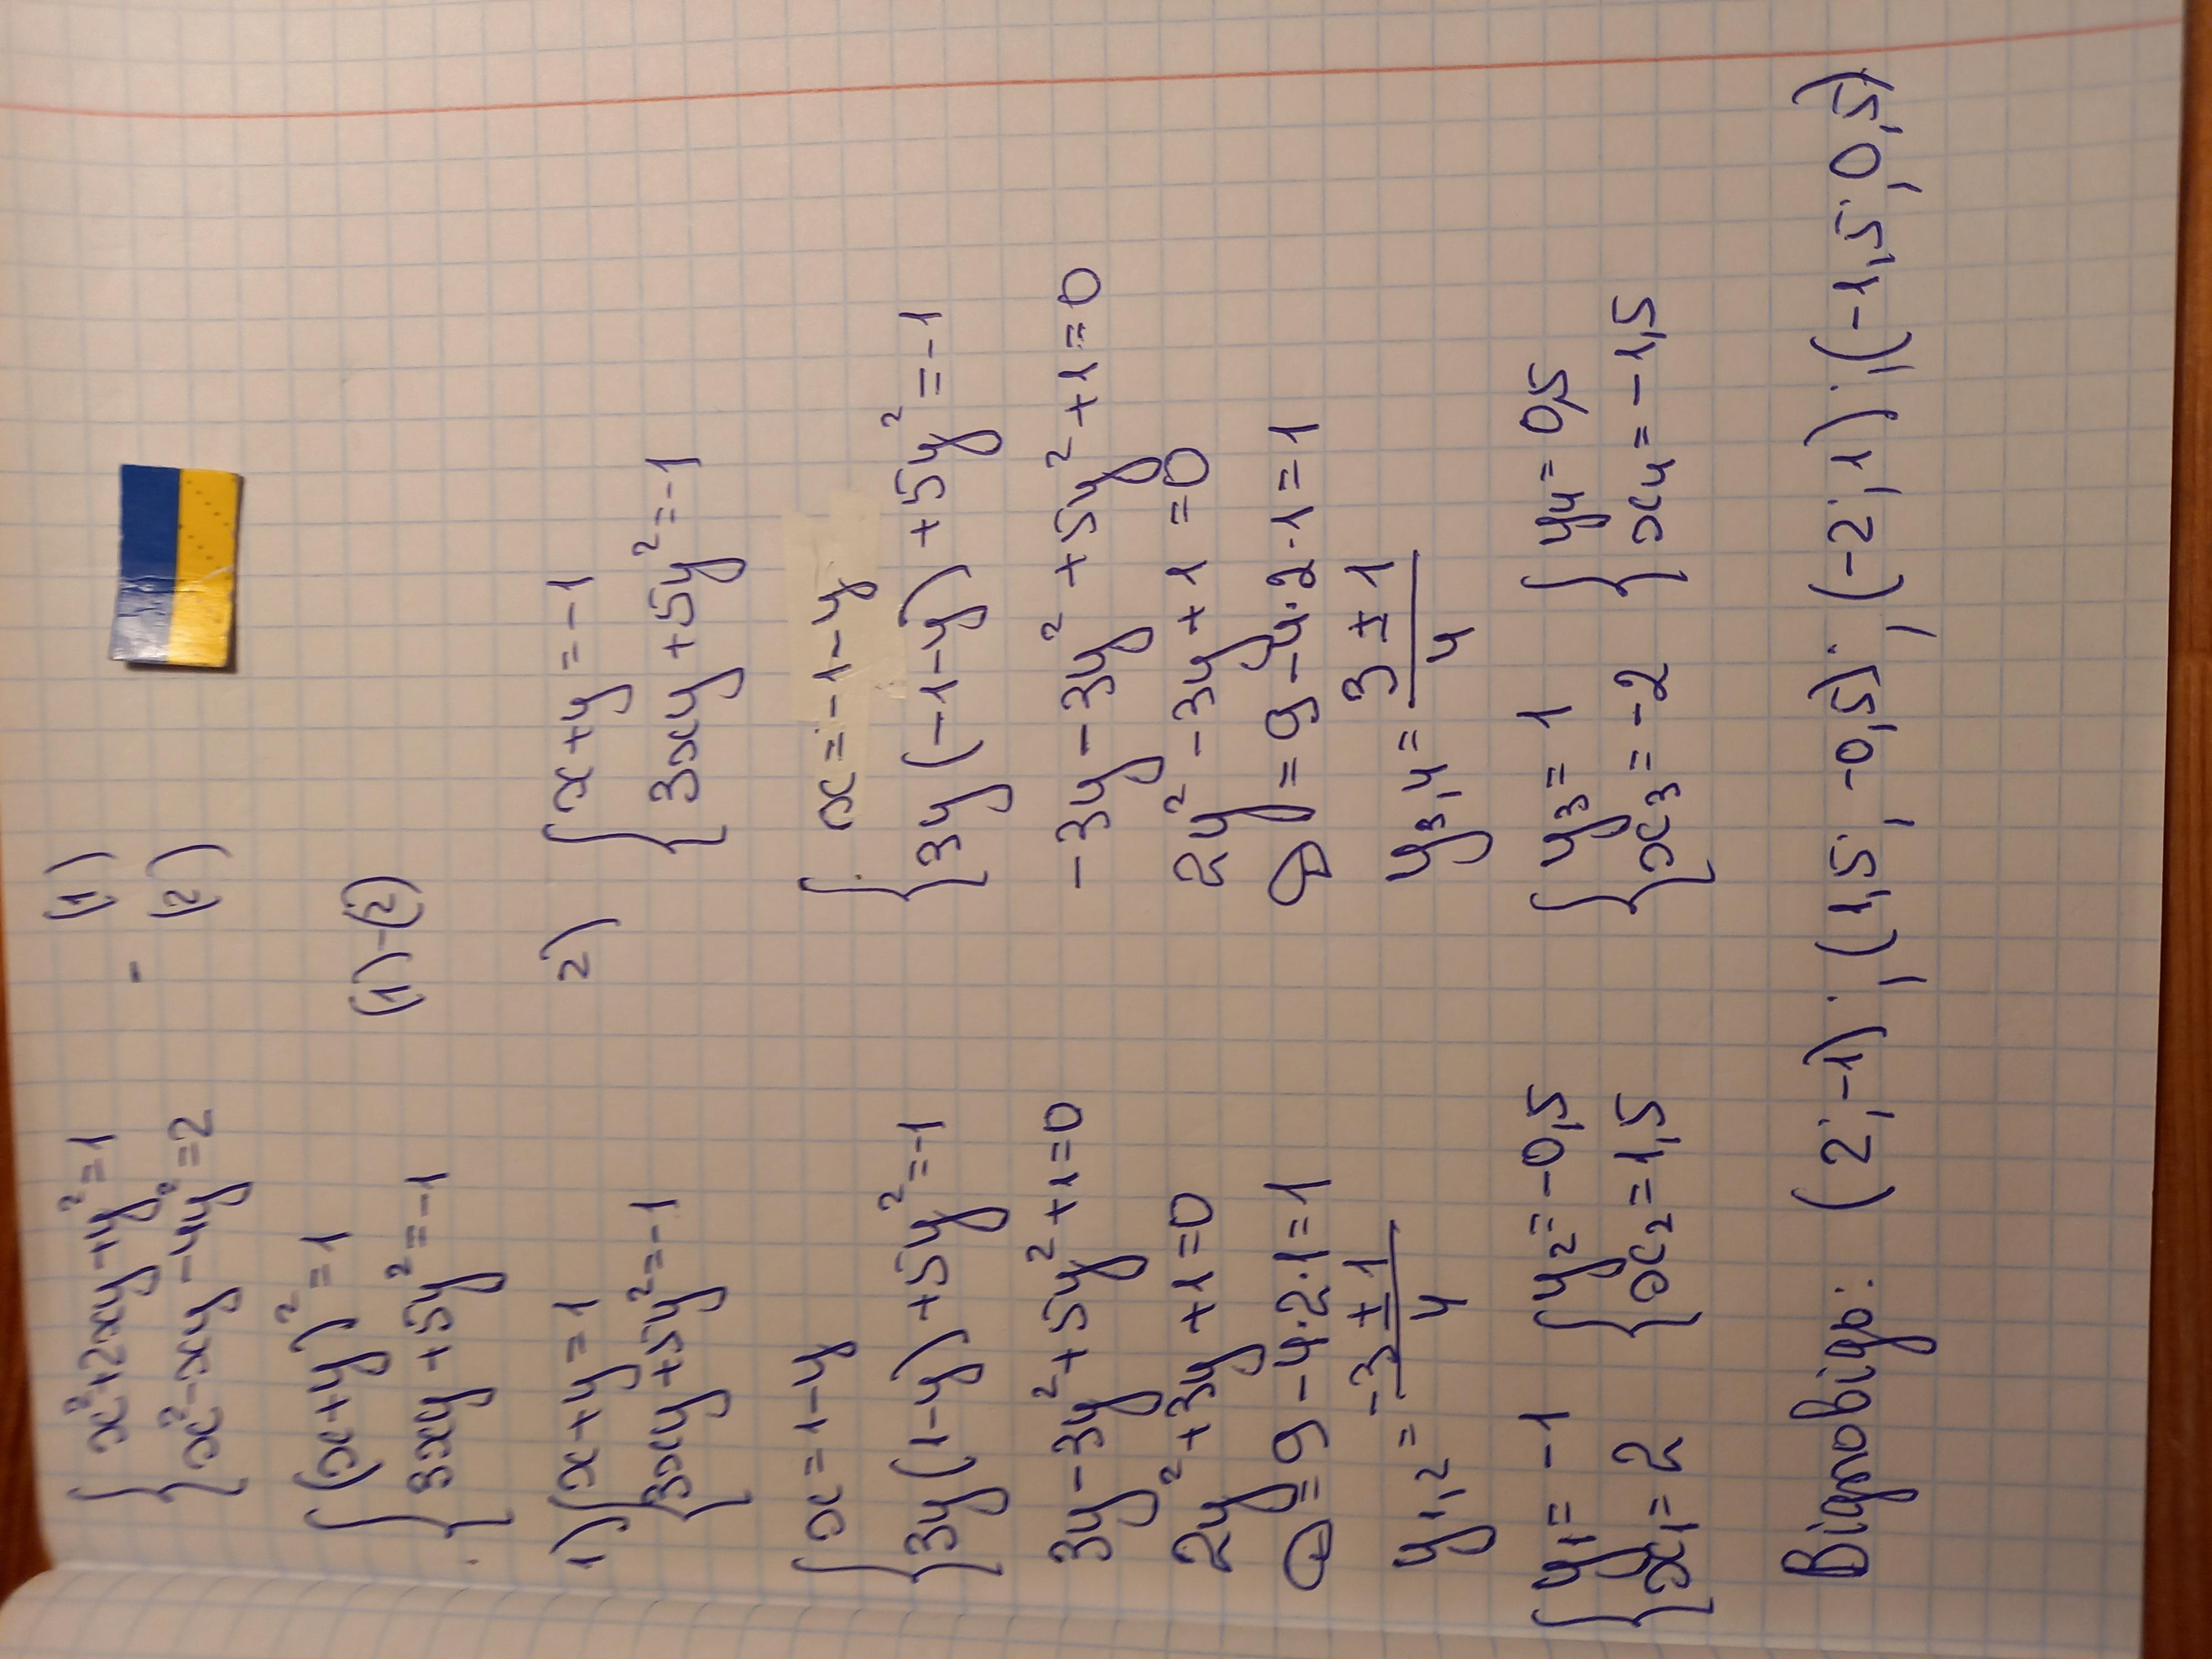 { x²+2xy+y²=1 (1)
{ x²-xy-4y²=2 - (2)
{ (x+y)²=1
{ 3xy+5y²=-1 (1)-(2)
1) { x+y=1
{ 3xy+5y²=-1
{ x=1-y
{ 3y(1-y)+5y²=-1
3y-3y²+5y²+1=0
2y²+3y+1=0
D=9-4·2·1=1
y₁,₂=(-3±1)/4
{ y₁=-1 { y₂=-0,5
{ x₁=2 { x₂=1,5
2) { x+y=-1
{ 3xy+5y²=-1
{ x=-1-y
{ 3y(-1-y)+5y²=-1
-3y-3y²+5y²+1=0
2y²-3y+1=0
D=9-4·2·1=1
y₃,₄=(3±1)/4
{ y₃=1 { y₄=0,5
{ x₃=-2 { x₄=-1,5
Відповідь: (2;-1);(1,5;-0,5);(-2;1);(-1,5;0,5)